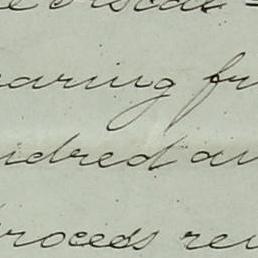 earing fr
ndred an
proceeds rev